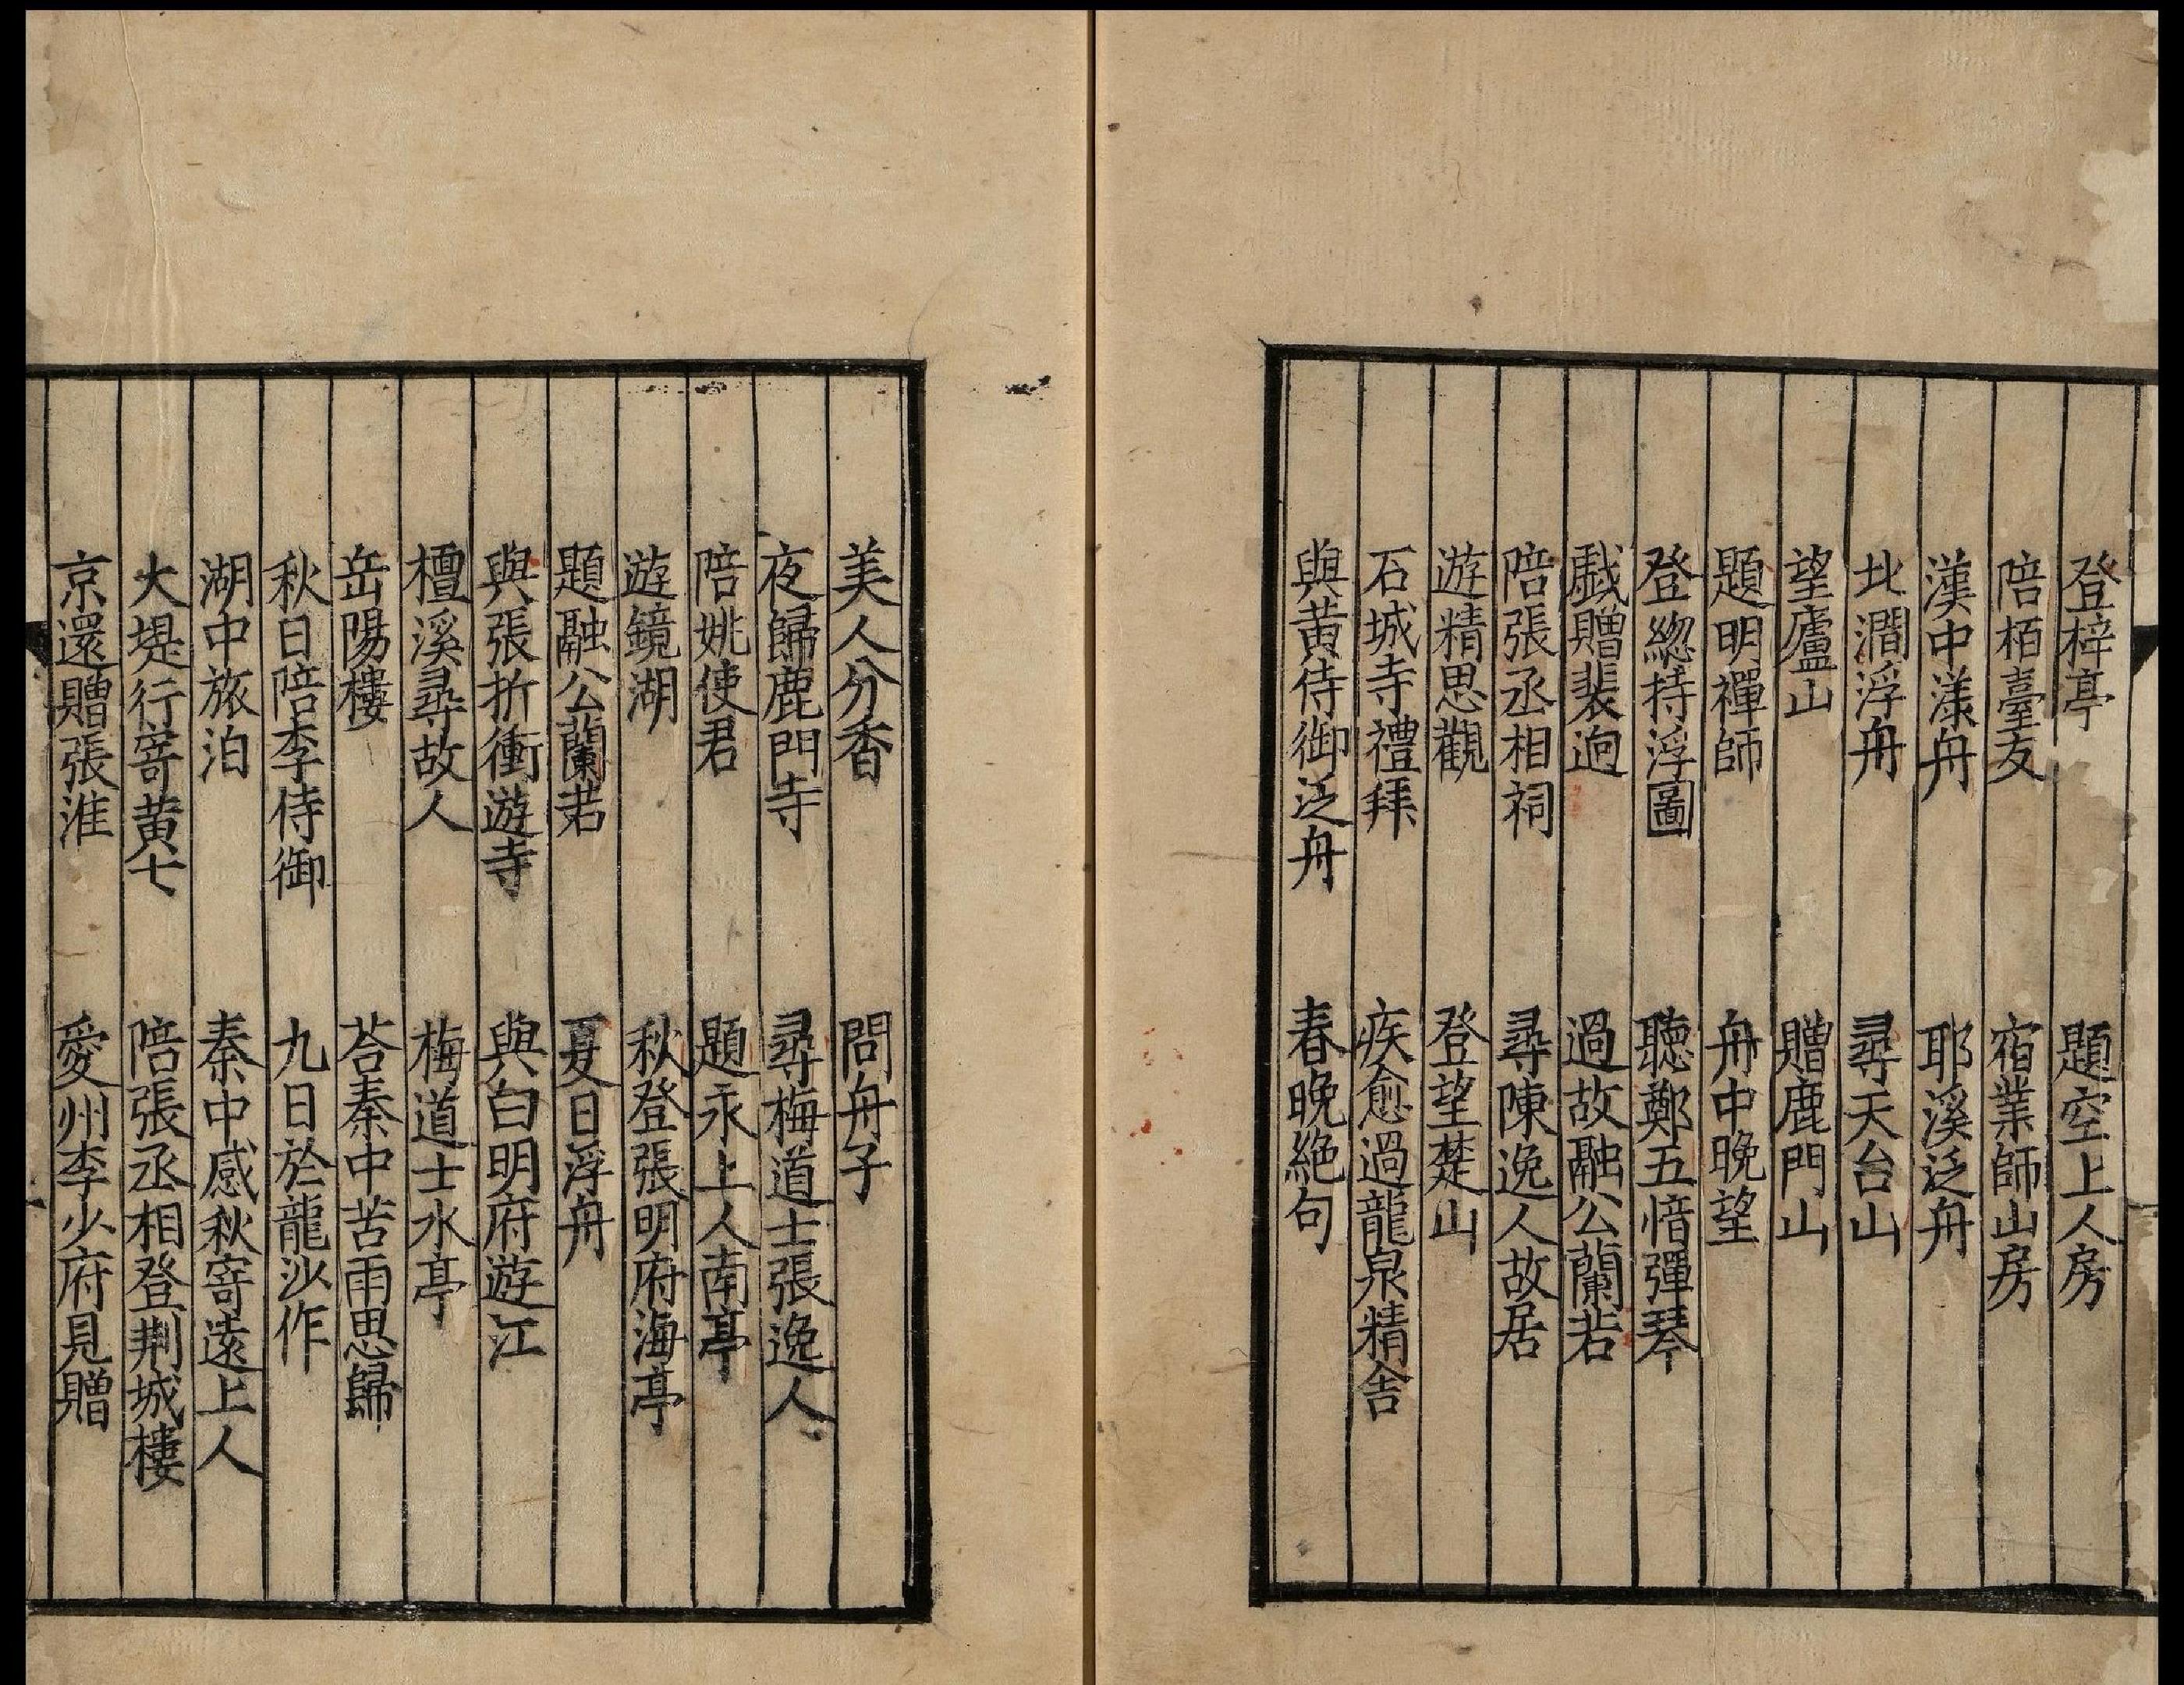 登梓亭　題空上人房
陪栢臺友　宿業師山房
漢中漾舟　耶溪泛舟
北澗浮舟　尋天台山
望廬山　贈鹿門山
題明禪師　舟中晚望
登緫持浮圖　聽鄭五愔彈琴
戱贈裴逈　過故融公蘭若
陪張丞相祠　尋陳逸人故居
遊精思觀　登望楚山
石城寺禮拜　疾愈過龍泉精舎
與黄侍御泛舟　春晚絶句
美人分香　問舟子
夜歸鹿門寺　尋梅道士張逸人
陪姚使君　題永上人南亭
遊鏡湖　秋登張明府海亭
題融公蘭若　夏日浮舟
與張折衝遊寺　與白明府遊江
檀溪尋故人　梅道士水亭
岳陽樓　荅秦中苦雨思歸
秋日陪李侍御　九日於龍沙作
湖中旅泊　秦中感秋寄遠上人
大堤行寄黄七　陪張丞相登荆城樓
京還贈張淮　愛州李少府見贈